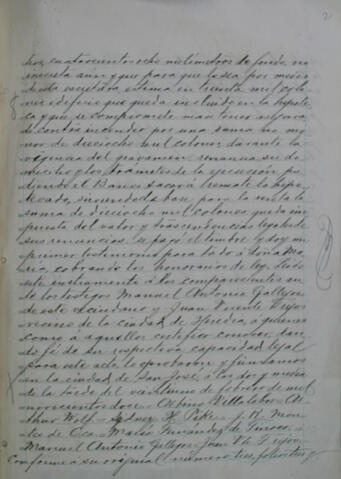 tros, cuatrocientos ocho milímetros de fondo, no
inscrita aún y que para que lo sea por medio
de esta escritura estima en treinta mil colo-
nes edificio que queda incluido en la hipote-
ca y que se compromete mantener
contra incendio por una suma no me-
nor de dieciocho mil colones durante la
vigencia del gravamen renuncia su do-
micilio y los trámites de la ejecución pu-
diendo el Banco sacar a remate lo hipo-
tecado, sirviendo de base para la venta la
suma de dieciocho mil colones queda im-
puesta del valor y trascendencias legales de
sus renuncias. Se pagó el timbre y doy un
primer testimonio para todo a doña Ma-
ría, cobrando los honorarios de ley. Leído
este instrumento a los comparecientes an-
te los testigos Manuel Antonio Gallegos
de este vecindario y Juan Vicente Trejos
vecino de la ciudad de Heredia, a quienes
como a aquellos certifico conocer, dan-
do fé de su respectiva capacidad legal
para este acto, lo aprobaron y firmamos
en la ciudad de San José, a las dos y media
de la tarde del veintiuno de febrero de mil
novecientos doce. Albino Villalobos. Ar-
thur Wolf. H. Pike. J. M. Mon-
tes de Oca. María Fernández de Tinoco.
Manuel Antonio Gallegos. Juan Vte. Trejos.
Conforme a su original número tres, folios